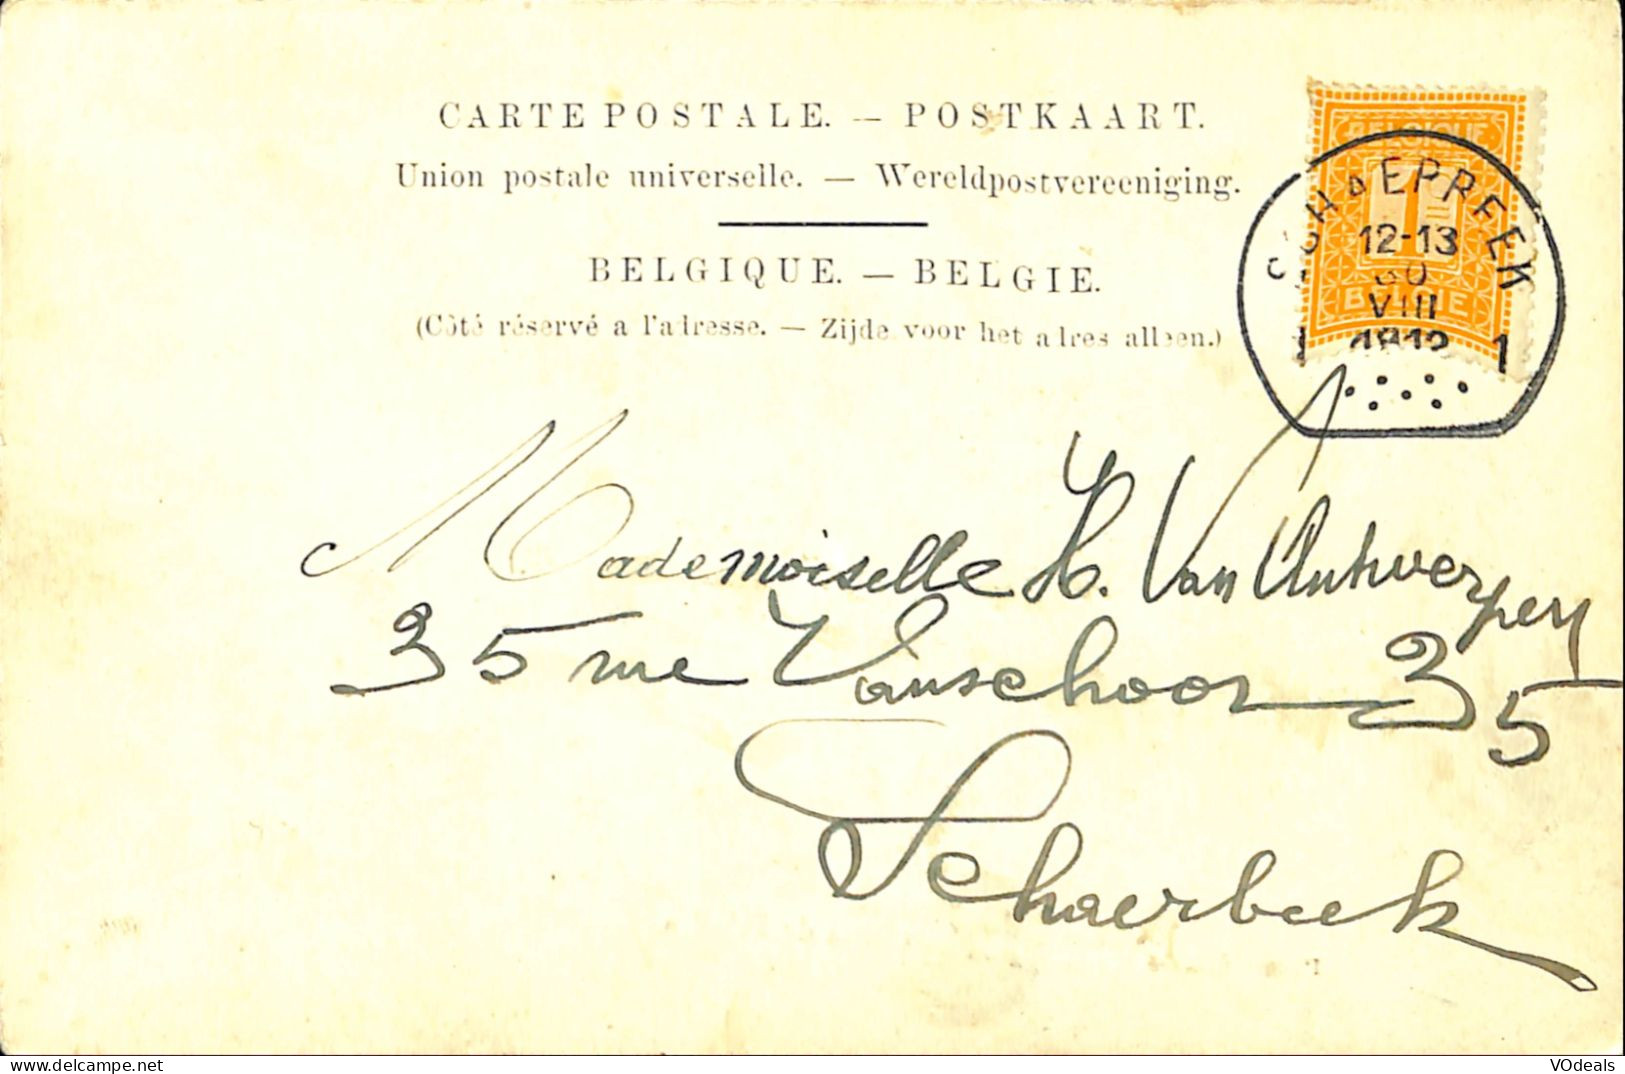 CARTE POSTALE. — POSTKAART.
Union postale universelle. — Wereldpostvereeniging.
BELGIQUE. — BELGIE.
(Côté réservé a l'adresse. — Zijde voor het adres alleen.)
BELGIQUE
1
BELGIË
SCHAERBEEK
12-13
30
VIII
1912
1 1
Mademoiselle H. Van Antwerpen
35 rue Vanschoor 35
Schaerbeek
VOdeals